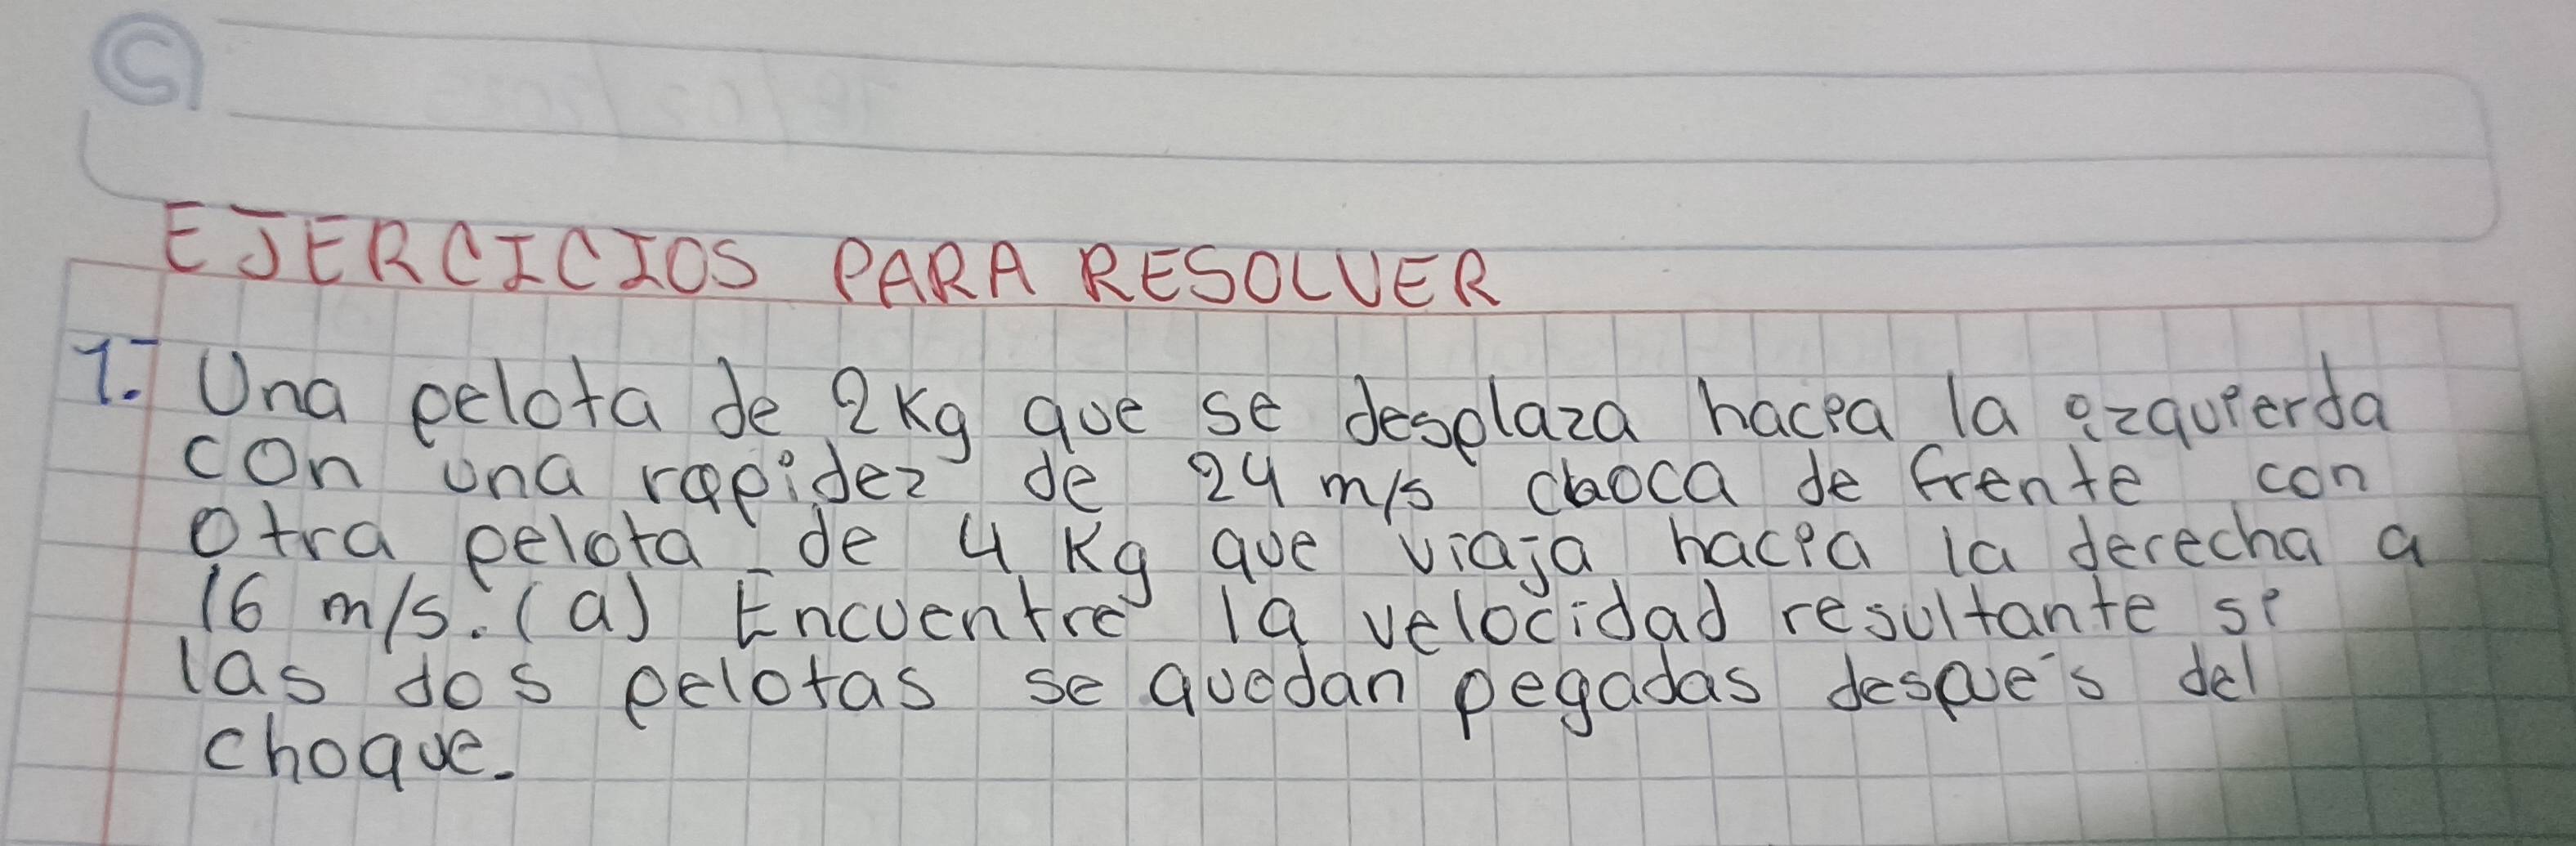 EJERCICIOS PARA RESOLVER
1.- Una pelota de 2Kg que se desplaza hacia la izquierda
con una rapidez de 24 m/s choca de frente con
otra pelota de 4 Kg que viaja hacia la derecha a
16 m/s. (a) Encuentre la velocidad resultante si
las dos pelotas se quedan pegadas despues del
choque.